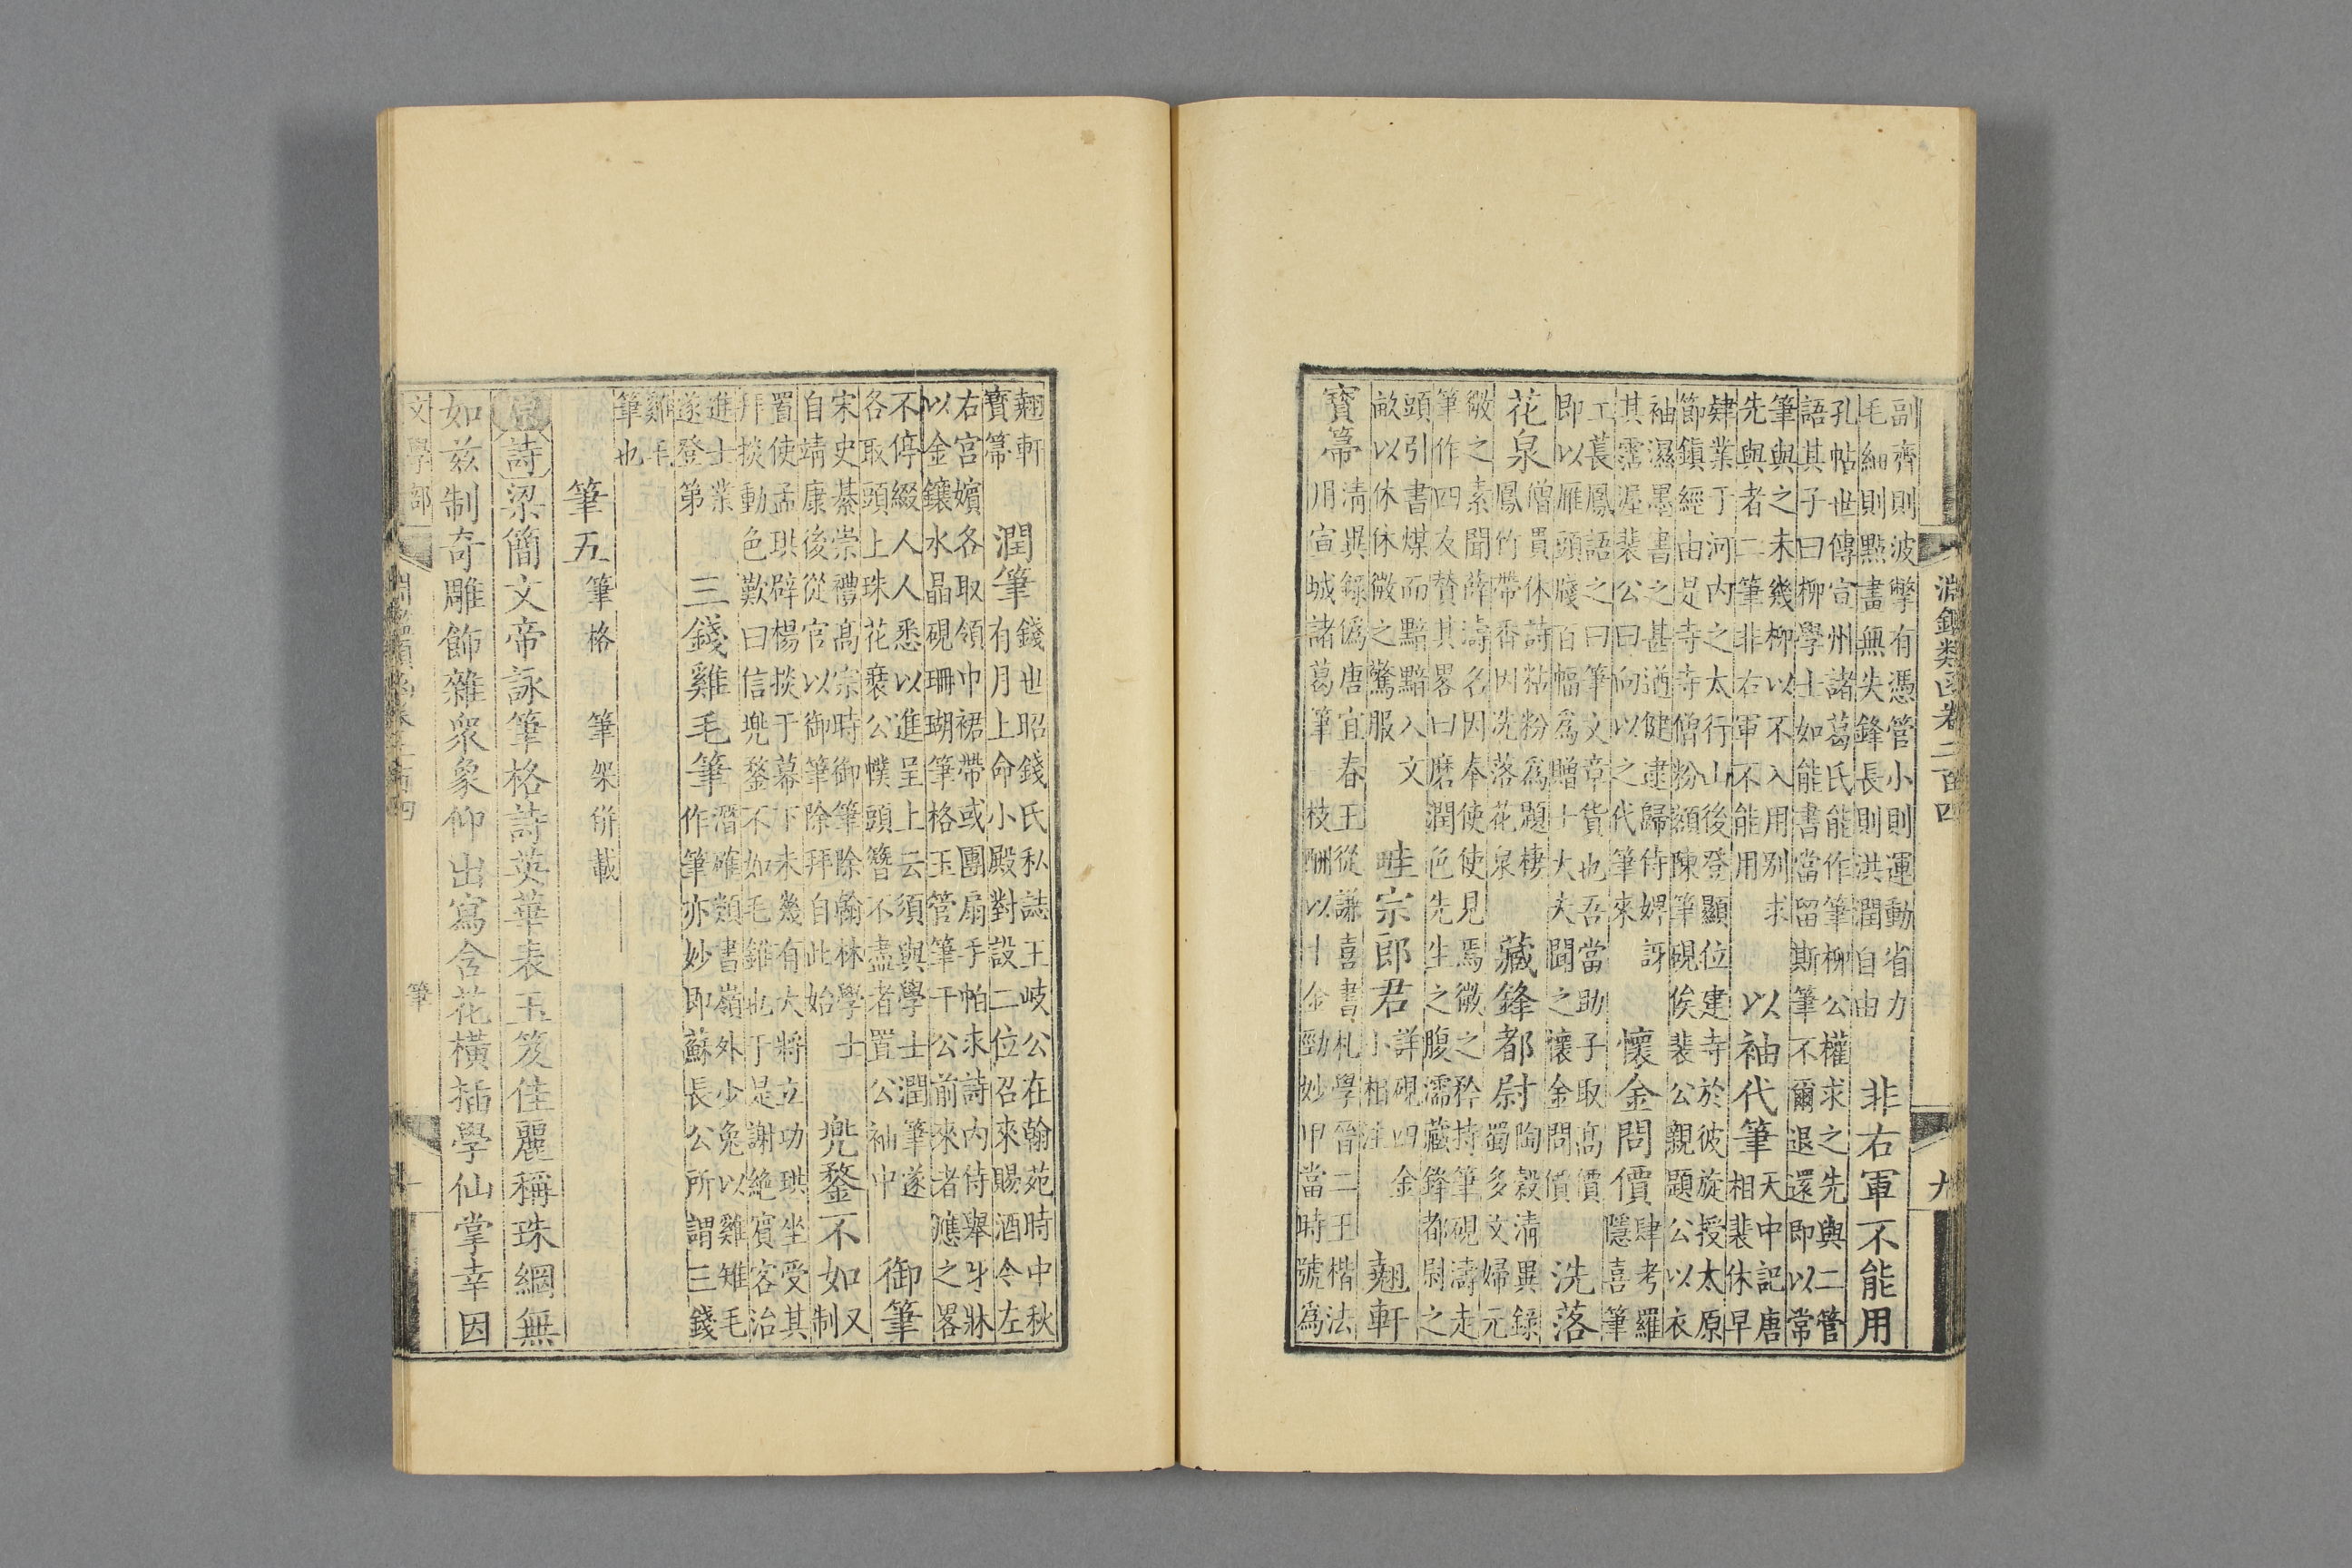 淵鑑類函卷二百四 九
副齊則波撆有憑管小則運動省力
毛細則點畫無失鋒長則洪潤自由
非右軍不能用
孔帖世傳宣州諸葛氏能作筆柳公權求之先與二管
語其子曰柳學士如能書當留斯筆不爾退還即以常
筆與之未幾柳以不入用别求
先與者二筆非右軍不能用
以袖代筆
天中記唐
相裴休早
肄業于河内之太行山後登顯位建寺於彼旋授太原
節鎮經由是寺寺僧粉額陳筆硯俟裴公親題公以衣
袖濕墨書之甚遒健逮歸侍婢訝
其霑渥裴公曰向以之代筆來
懷金問價
肆考羅
隱喜筆
工萇鳳語之曰筆文章貨也吾當助子取高價
即以雁頭牋百幅為贈士大夫聞之懷金問價
洗落
花泉
僧貫休詩粘粉為題棲
鳳竹帶香因洗落花泉
藏鋒都尉
陶穀清異錄
蜀多文婦元
微之素聞薛濤名因奉使使見焉微之矜持筆硯濤走
筆作四友贊其畧曰磨潤色先生之腹濡藏鋒都尉之
頭引書煤而黯黯入文
畝以休休微之驚服
畦宗郎君
詳硯四金
小相注
翹軒
寶箒
清異錄偽唐宜春王從謙喜書札學晉二王楷法
用宣城諸葛筆一枝酬以十金勁妙甲當時號為
翹軒
寶箒
潤筆
錢世昭錢氏私誌王岐公在翰苑時中秋
有月上命小殿對設二位召來賜酒令左
右宮嬪各取領巾裙帶或團扇手帕求詩内侍舉牙牀
以金鑲水晶硯珊瑚筆格玉管筆于公前來者應之畧
不停綴人人悉以進呈上云須與學士潤筆遂
各取頭上珠花裝公幞頭簪不盡者置公袖中
御筆
宋史綦崇禮高宗時御筆除翰林學士
自靖康後從官以御筆除拜自此始
兜鍪不如
又
制
置使孟珙辟楊掞于幕下未幾有大將立功珙坐受其
拜掞動色歎曰信兜鍪不如毛錐也于是謝絕賓客治
進士業
遂登第
三錢雞毛筆
潛確類書嶺外少兔以雞雉毛
作筆亦妙即蘇長公所謂三錢
雞毛
筆也
筆五 筆格 筆架併載
詩 梁簡文帝詠筆格詩英華表玉笈佳麗稱珠網無
如兹制奇雕飾雜衆象仰出寫含花橫插學仙掌幸因
文學部 淵鑑類函卷二百四 筆